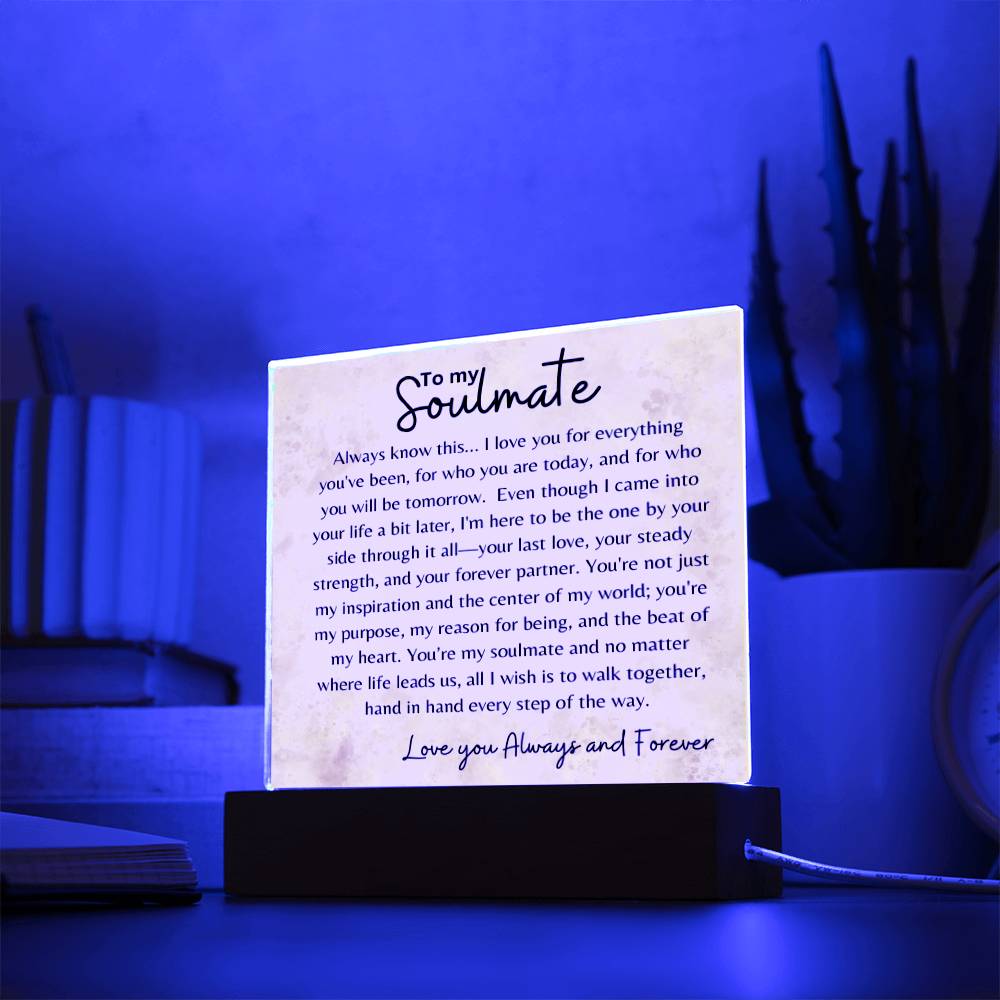 To my
Soulmate
Always know this... I love you for everything
you've been, for who you are today, and for who
you will be tomorrow.  Even though I came into
your life a bit later, I'm here to be the one by your
side through it all—your last love, your steady
strength, and your forever partner. You're not just
my inspiration and the center of my world; you're
my purpose, my reason for being, and the beat of
my heart. You're my soulmate and no matter
where life leads us, all I wish is to walk together,
hand in hand every step of the way.
Love you Always and Forever